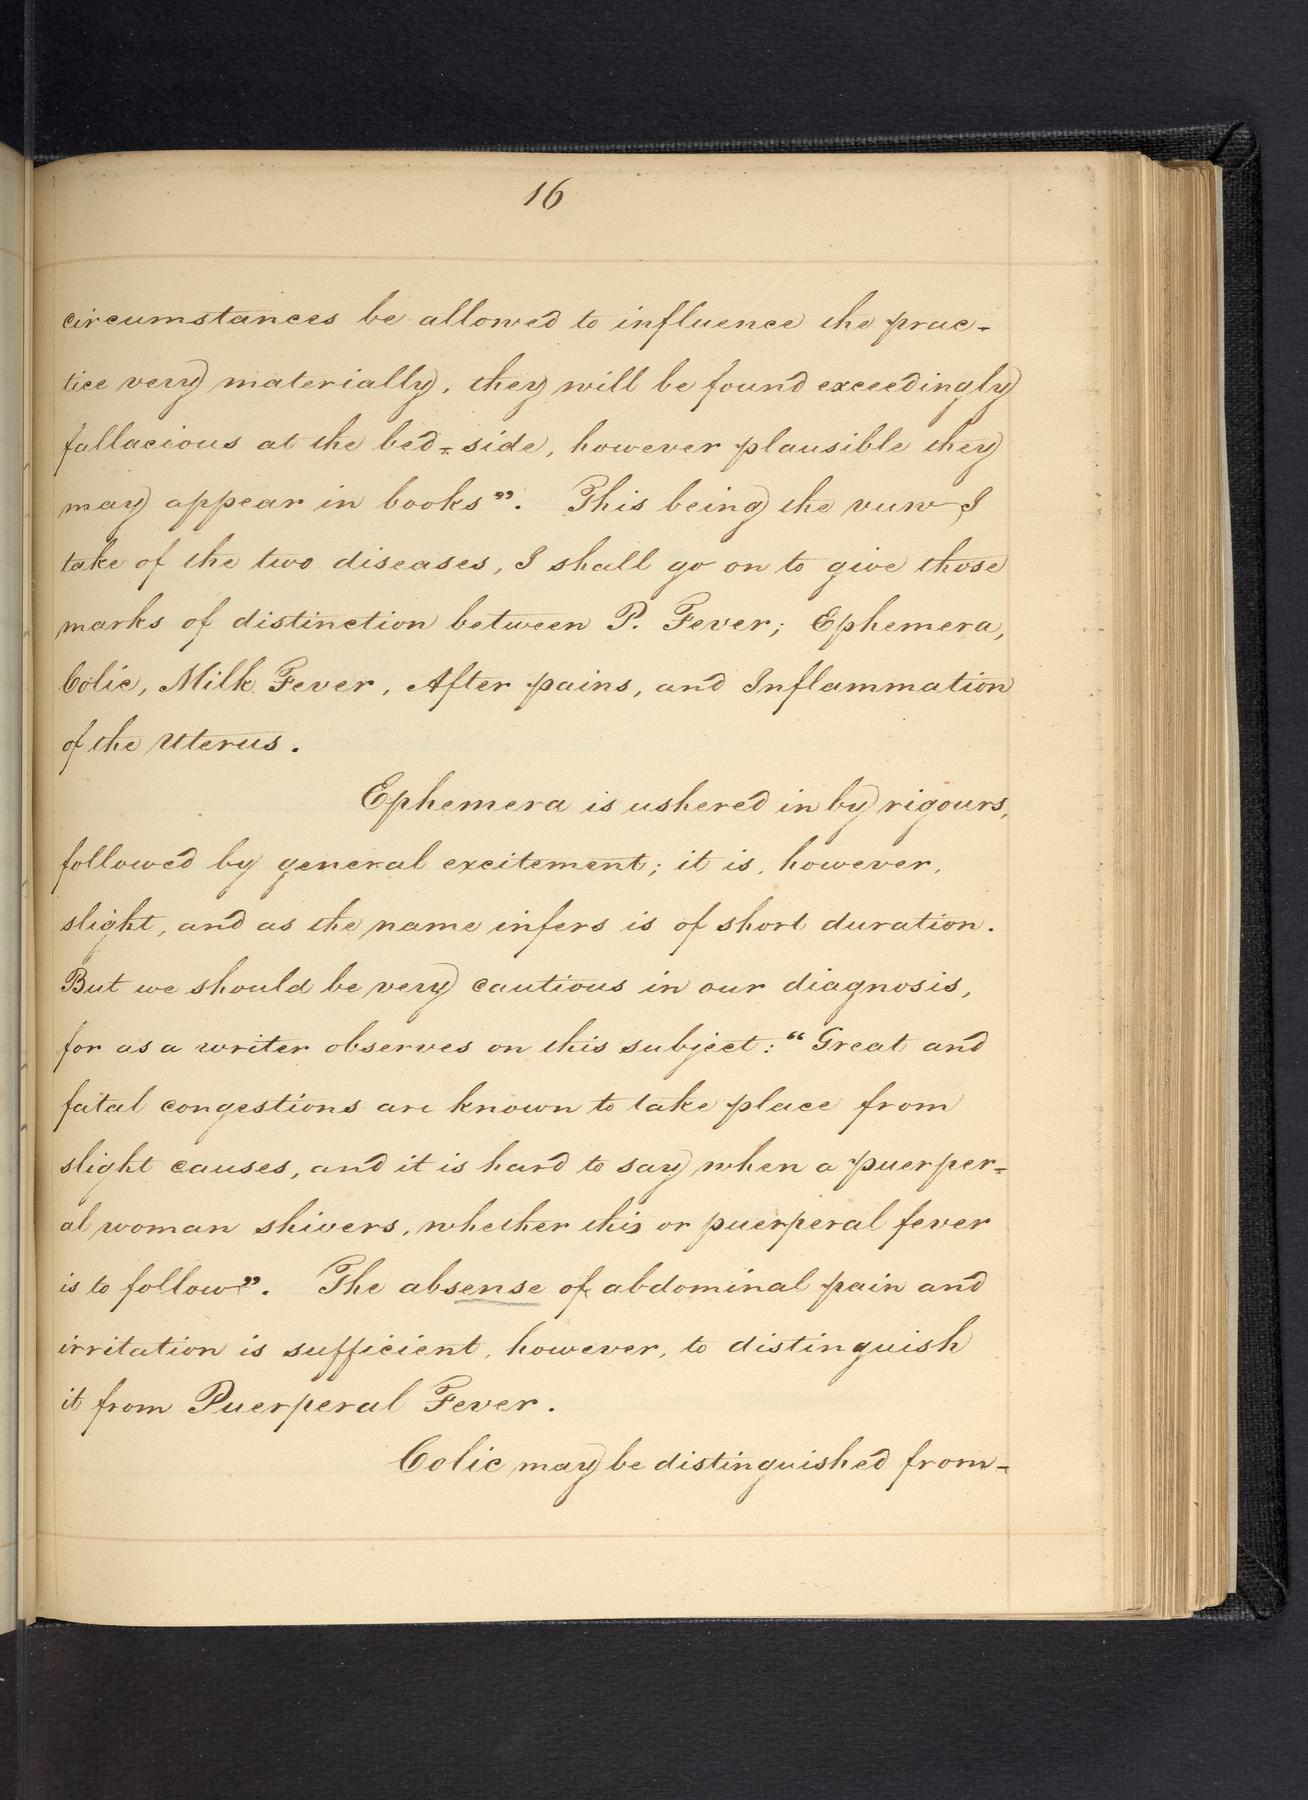 16
circumstances be allowed to influence the prac-
tice very materially, they will be found exceedingly
fallacious at the bed-side, however plausible they
may appear in books". This being the view I
take of the two diseases, I shall go on to give those
marks of distinction between P. Fever; Ephemera,
Colic, Milk Fever, After pains, and Inflammation
of the Uterus.
Ephemera is ushered in by rigours,
followed by general excitement; it is, however,
slight, and as the name infers is of short duration.
But we should be very cautious in our diagnosis,
for as a writer observes on this subject: "Great and
fatal congestions are known to take place from
slight causes, and it is hard to say when a puerper-
al woman shivers, whether this or puerperal fever
is to follow". The absense of abdominal pain and
irritation is sufficient, however, to distinguish
it from Puerperal Fever.
Colic may be distinguished from-